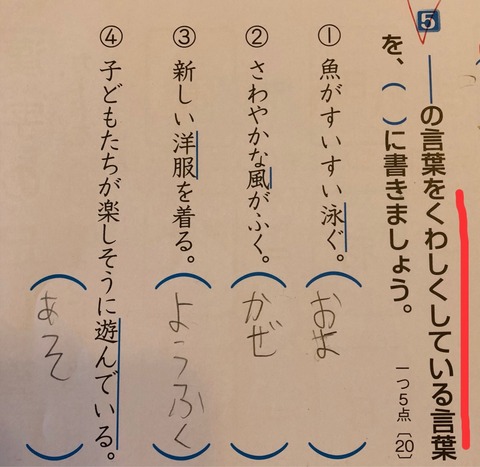 5 ――の言葉をくわしくしている言葉
を、（ ）に書きましょう。
一つ5点〔20〕
① 魚がすいすい泳ぐ。（およ）
② さわやかな風がふく。（かぜ）
③ 新しい洋服を着る。（ようふく）
④ 子どもたちが楽しそうに遊んでいる。（あそ）